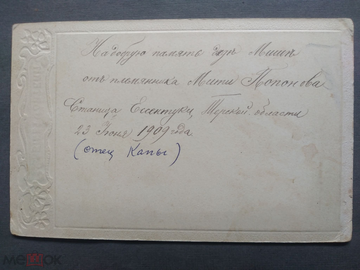 На добрую память дяде Мише
отъ племянника Мити Попонова
Станица Ессентуки, Терской области
23 Июня 1909 года
(отец Капы)
мешок